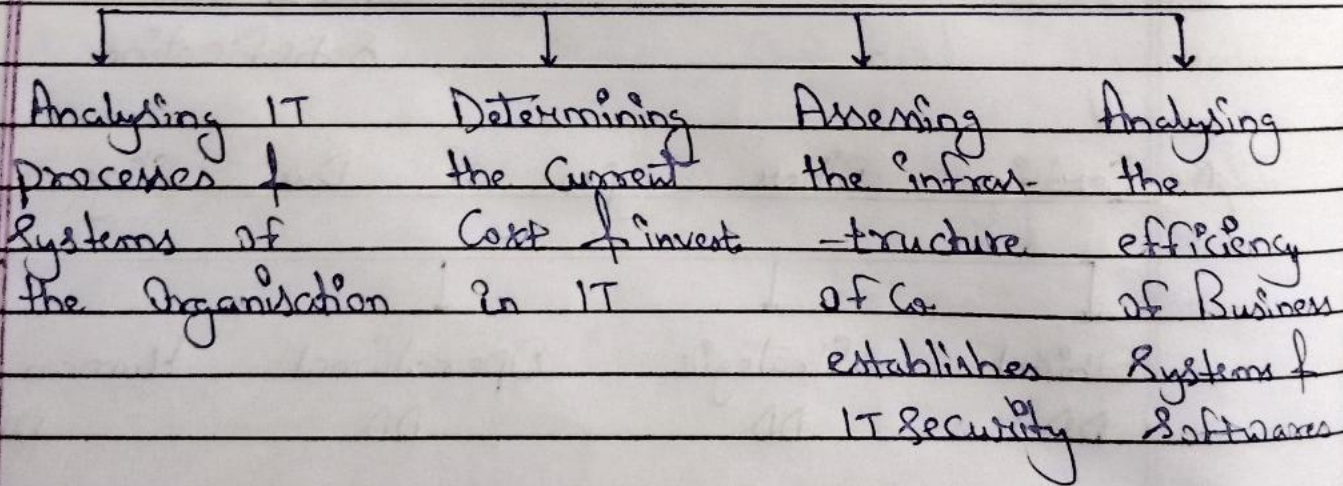 Analysing IT
processes &
Systems of
the Organisation
Determining
the Current
Cost & invest
in IT
Assessing
the infras-
-tructure
of Co
establishes
IT Security
Analysing
the
efficiency
of Business
Systems &
Softwares